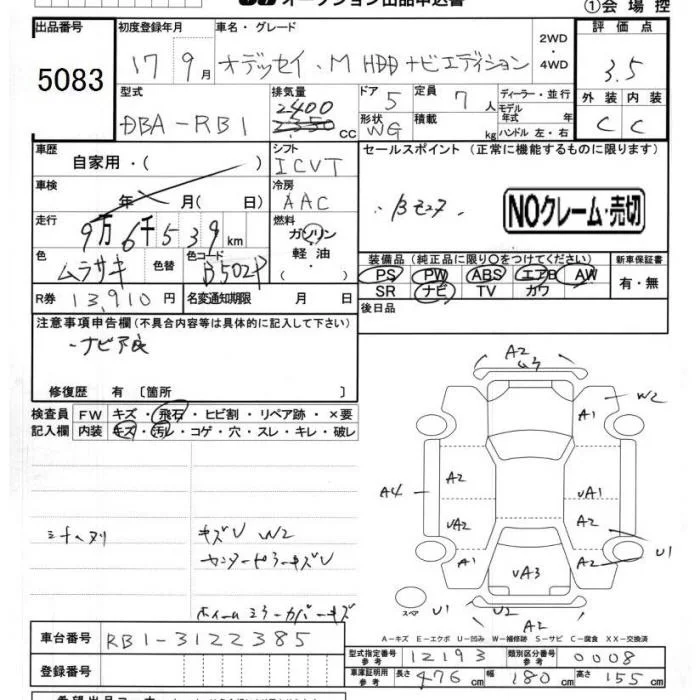 オークション出品申込書
①会場控
出品番号
5083
初度登録年月
17 9月
車名・グレード
オデッセイ・M HDDナビエディション
2WD・4WD
評価点
3.5
外装 内装
C C
型式
DBA-RB1
排気量
2400
2350 CC
ドア 5
定員 7人
形状 WG
積載 kg
ディーラー・並行
モデル年式 年
ハンドル 左・右
車歴
自家用・( )
シフト
ICVT
セールスポイント (正常に機能するものに限ります)
NOクレーム・売切
車検
年 月( 日)
冷房
AAC
走行
9万6千539km
燃料
ガソリン
軽油・
・
色
ムラサキ
色替
色コード
B502P
装備品 (純正品に限り○をつけてください)
PS PW ABS エアB AW
SR ナビ TV カワ
新車保証書
有・無
R券 13,910円
名変通知期限 月 日
後日品
注意事項申告欄 (不具合内容等は具体的に記入して下さい)
修復歴 有 〔箇所 〕
検査員記入欄
FW キズ・飛石・ヒビ割・リペア跡・×要
内装 キズ・汚レ・コゲ・穴・スレ・キレ・破レ
キズU W2
センターピラーキズU
ホイールミラーカバーキズ
A2
W2
A1
A2
A4
UA1
UA2
A2
A1
A2
U1
UA3
スペア
U1
U2
A2
A-キズ E-エクボ U-凹み W-補修跡 S-サビ C-腐食 XX-交換済
車台番号
RB1-3122385
型式指定番号 参考 12193
類別区分番号 参考 0008
登録番号
車庫証明用 参考
長さ 476cm
幅 180cm
高さ 155cm